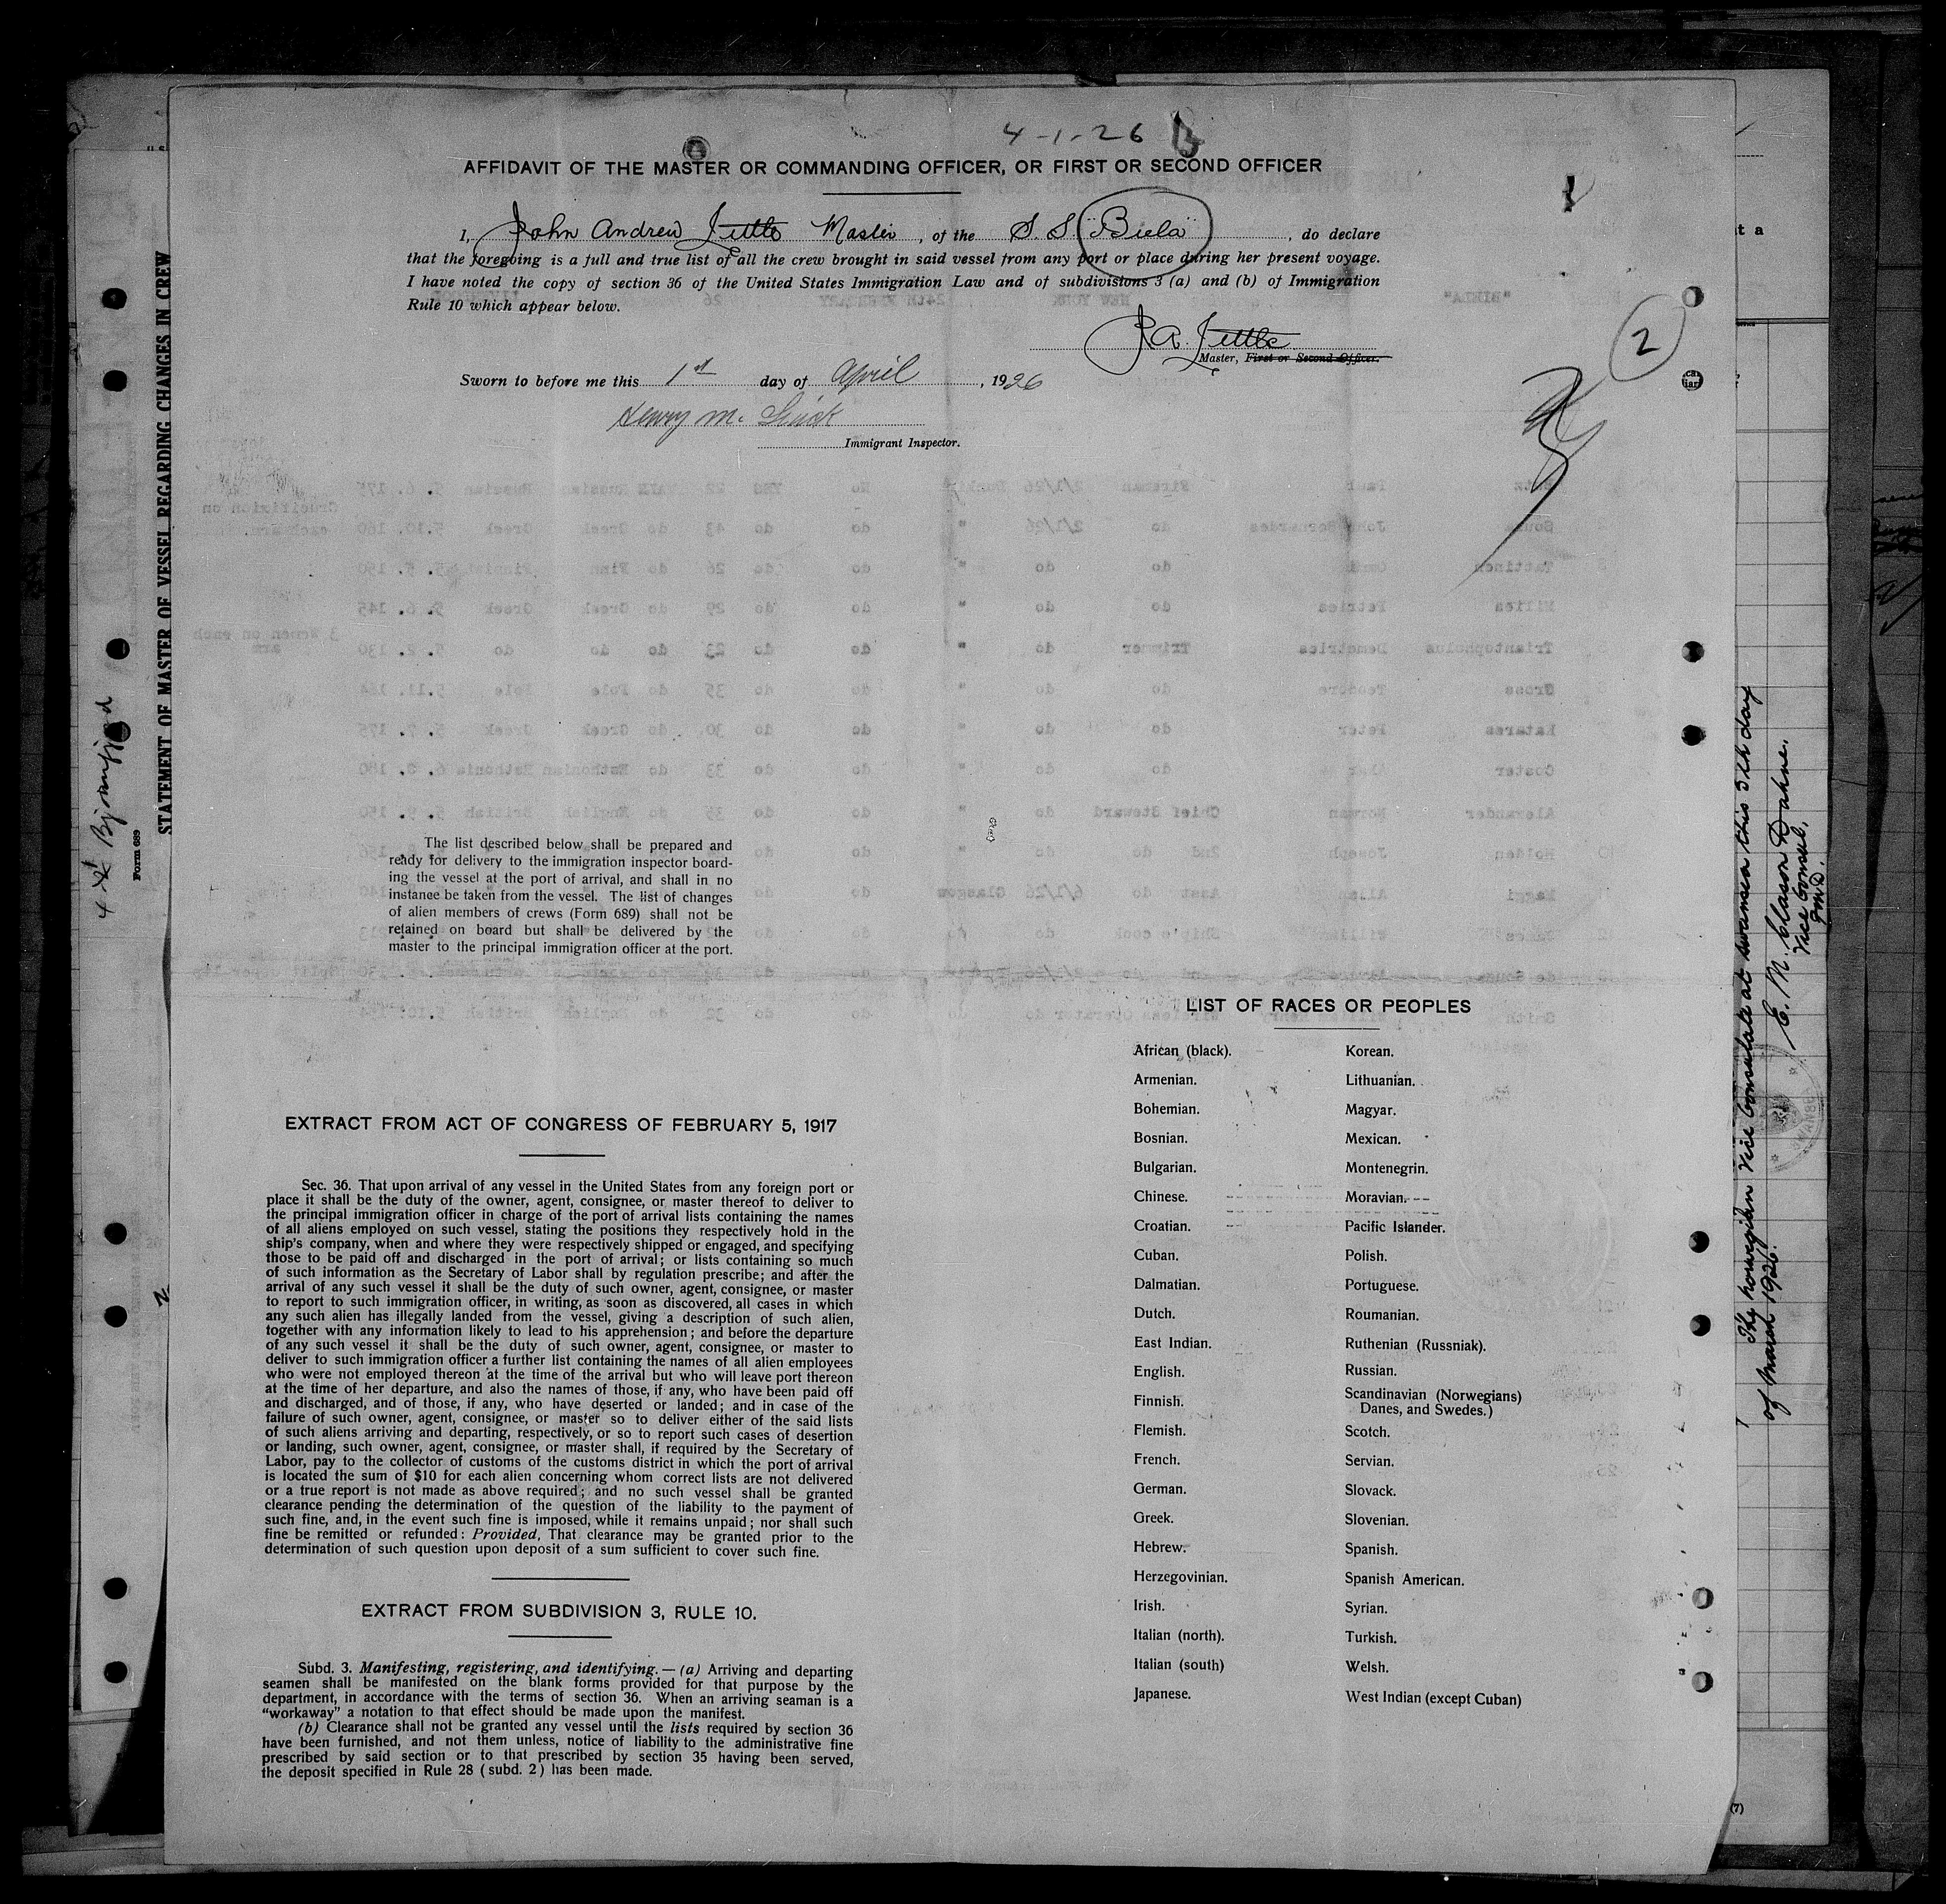 4-1-26
AFFIDAVIT OF THE MASTER OR COMMANDING OFFICER, OR FIRST OR SECOND OFFICER
I, John Andrew Master, of the S.S. "Biela", do declare
that the foregoing is a full and true list of all the crew brought in said vessel from any port or place during her present voyage.
I have noted the copy of section 36 of the United States Immigration Law and of subdivisions 3 (a) and (b) of Immigration
Rule 10 which appear below.
2
Master, First or Second Officer.
Sworn to before me this 1st day of April, 1926
Henry M.
Immigrant Inspector.
STATEMENT OF MASTER OF VESSEL REGARDING CHANGES IN CREW
Form 689
The list described below shall be prepared and
ready for delivery to the immigration inspector board-
ing the vessel at the port of arrival, and shall in no
instance be taken from the vessel. The list of changes
of alien members of crews (Form 689) shall not be
retained on board but shall be delivered by the
master to the principal immigration officer at the port.
EXTRACT FROM ACT OF CONGRESS OF FEBRUARY 5, 1917
Sec. 36. That upon arrival of any vessel in the United States from any foreign port or
place it shall be the duty of the owner, agent, consignee, or master thereof to deliver to
the principal immigration officer in charge of the port of arrival lists containing the names
of all aliens employed on such vessel, stating the positions they respectively hold in the
ship's company, when and where they were respectively shipped or engaged, and specifying
those to be paid off and discharged in the port of arrival; or lists containing so much
of such information as the Secretary of Labor shall by regulation prescribe; and after the
arrival of any such vessel it shall be the duty of such owner, agent, consignee, or master
to report to such immigration officer, in writing, as soon as discovered, all cases in which
any such alien has illegally landed from the vessel, giving a description of such alien,
together with any information likely to lead to his apprehension; and before the departure
of any such vessel it shall be the duty of such owner, agent, consignee, or master to
deliver to such immigration officer a further list containing the names of all alien employees
who were not employed thereon at the time of the arrival but who will leave port thereon
at the time of her departure, and also the names of those, if any, who have been paid off
and discharged, and of those, if any, who have deserted or landed; and in case of the
failure of such owner, agent, consignee, or master so to deliver either of the said lists
of such aliens arriving and departing, respectively, or so to report such cases of desertion
or landing, such owner, agent, consignee, or master shall, if required by the Secretary of
Labor, pay to the collector of customs of the customs district in which the port of arrival
is located the sum of $10 for each alien concerning whom correct lists are not delivered
or a true report is not made as above required; and no such vessel shall be granted
clearance pending the determination of the question of the liability to the payment of
such fine, and, in the event such fine is imposed, while it remains unpaid; nor shall such
fine be remitted or refunded: Provided, That clearance may be granted prior to the
determination of such question upon deposit of a sum sufficient to cover such fine.
EXTRACT FROM SUBDIVISION 3, RULE 10.
Subd. 3. Manifesting, registering, and identifying.—(a) Arriving and departing
seamen shall be manifested on the blank forms provided for that purpose by the
department, in accordance with the terms of section 36. When an arriving seaman is a
"workaway" a notation to that effect should be made upon the manifest.
(b) Clearance shall not be granted any vessel until the lists required by section 36
have been furnished, and not them unless, notice of liability to the administrative fine
prescribed by said section or to that prescribed by section 35 having been served,
the deposit specified in Rule 28 (subd. 2) has been made.
LIST OF RACES OR PEOPLES
African (black).
Armenian.
Bohemian.
Bosnian.
Bulgarian.
Chinese.
Croatian.
Cuban.
Dalmatian.
Dutch.
East Indian.
English.
Finnish.
Flemish.
French.
German.
Greek.
Hebrew.
Herzegovinian.
Irish.
Italian (north).
Italian (south)
Japanese.
Korean.
Lithuanian.
Magyar.
Mexican.
Montenegrin.
Moravian.
Pacific Islander.
Polish.
Portuguese.
Roumanian.
Ruthenian (Russniak).
Russian.
Scandinavian (Norwegians)
Danes, and Swedes.)
Scotch.
Servian.
Slovack.
Slovenian.
Spanish.
Spanish American.
Syrian.
Turkish.
Welsh.
West Indian (except Cuban)
norwegian Vice Consulate at Swansea this 5th day
of March 1926.
E. M. Clason Dahne.
Vice Consul.